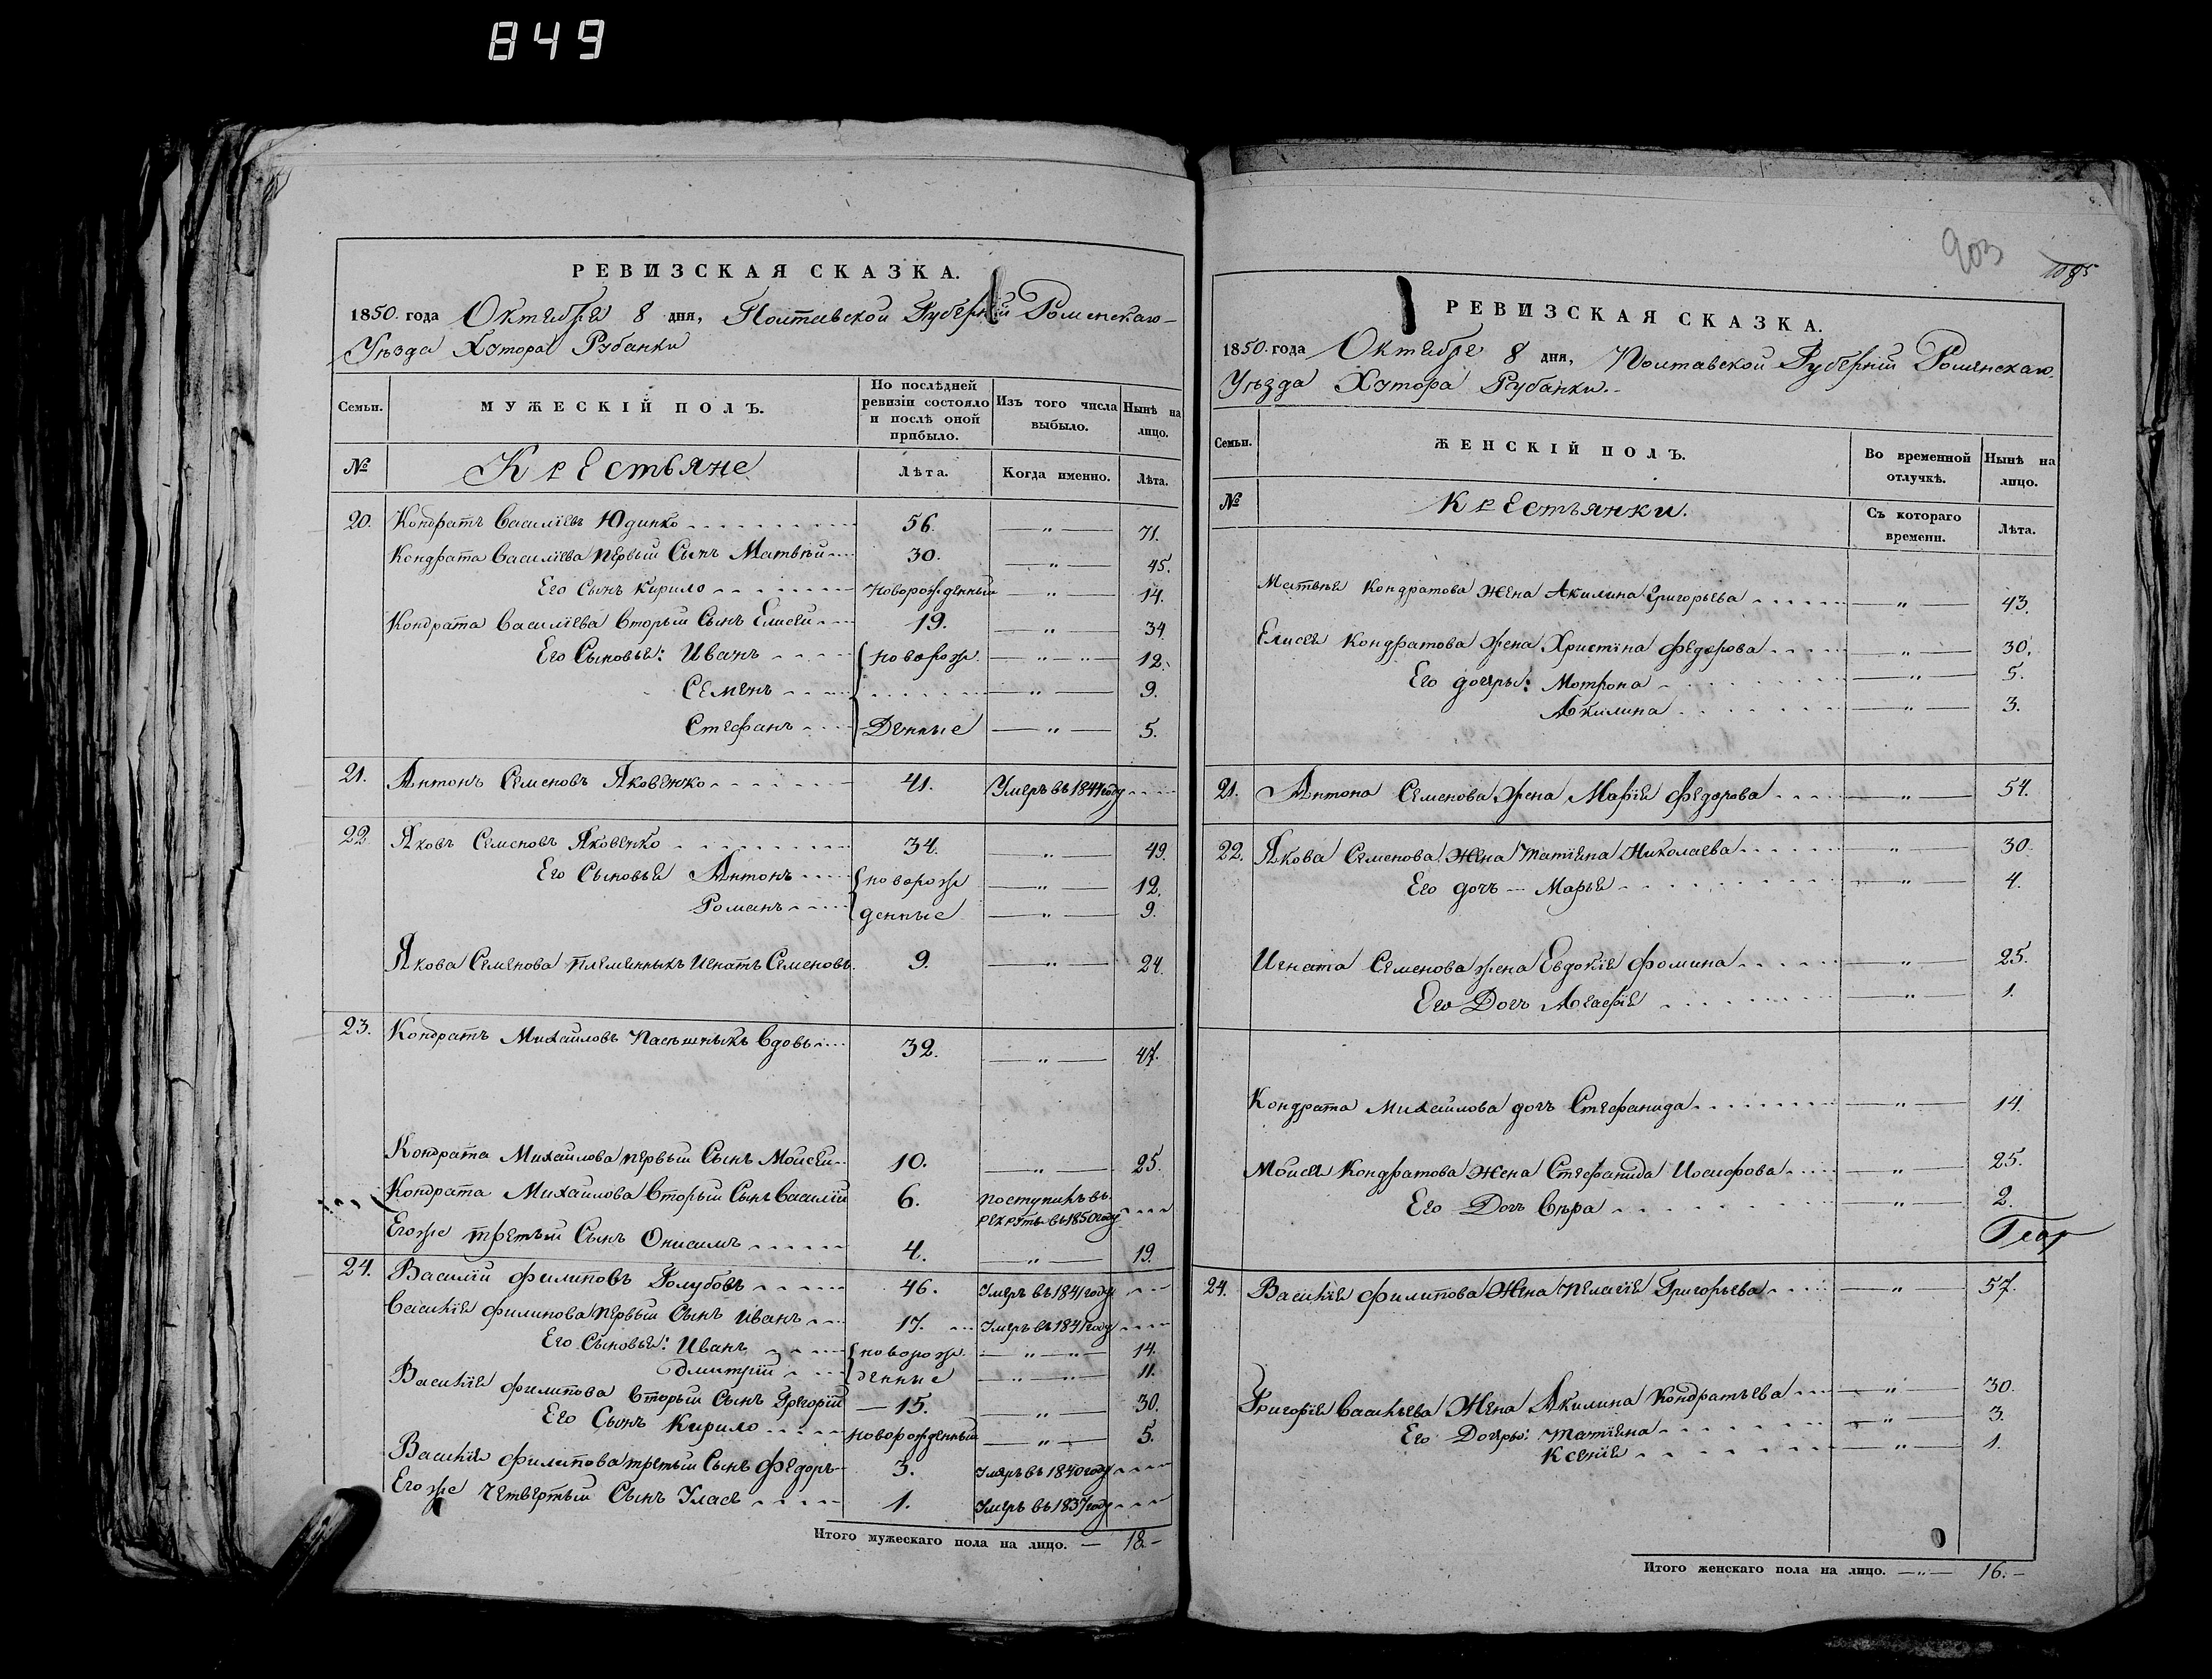 849
РЕВИЗСКАЯ СКАЗКА.
1850. года Октября 8 дня, Полтавской Губерніи Роменскаго
Уѣзда Хутора Рубанки
Семьи. МУЖЕСКІЙ ПОЛЪ. По послѣдней ревизіи состояло и послѣ оной прибыло. Изъ того числа выбыло. Нынѣ на лицо.
№ Крестьяне Лѣта. Когда именно. Лѣта.
20. Кондратъ Васильевъ Юдинко 56. — " — 71.
Кондрата Васильева первый Сынъ Матвѣй 30. — " — 45.
Его Сынъ Кирило Новорожденный — " — 14.
Кондрата Васильева Вторый Сынъ Елисей 19. — " — 34.
Его Сыновья: Иванъ новорож — " — " — 12.
Семенъ — " — 9.
Стефанъ Денные — " — 5.
21. Антонъ Семеновъ Яковенко 41. Умеръ въ 1844 году
22 Яковъ Семеновъ Яковенко 34. — " — 49.
Его Сыновья Антонъ новорож — " — 12.
Романъ денные — " — 9.
Якова Семенова племянникъ Игнатъ Семеновъ. 9. — " — 24.
23. Кондратъ Михайловъ Пасѣшныкъ Вдовъ 32. — " — 47.
Кондрата Михайлова первый Сынъ Мойсей 10. — " — 25.
Кондрата Михайлова Вторый Сынъ Василій 6. поступилъ въ рекруты въ 1850 году
Егоже третьий Сынъ Онисимъ 4. — " — 19.
24. Василій Филиповъ Голубовъ 46. Умеръ въ 1841 году
Василія Филипова первый Сынъ Иванъ 17. Умеръ въ 1841 году
Его Сыновья: Иванъ новорож — " — " — 14.
Дмитрій денные — " — " — 11.
Василія Филипова Вторый Сынъ Григорій — 15. — " — 30.
Его Сынъ Кирило новорожденный — " — 5.
Василія Филипова третьий Сынъ Федоръ 3. Умеръ въ 1840 году
Егоже четвертый Сынъ Уласъ 1. Умеръ въ 1837 году
Итого мужескаго пола на лицо. — 18. —
903
1085
РЕВИЗСКАЯ СКАЗКА.
1850. года Октября 8 дня, Полтавской Губерніи Роменскаго
Уѣзда Хутора Рубанки.
Семьи. ЖЕНСКІЙ ПОЛЪ. Во временной отлучкѣ. Нынѣ на лицо.
№ Крестьянки. Съ котораго времени. Лѣта.
Матвѣя Кондратова Жена Акилина Григорьева — " — 43.
Елисея Кондратова Жена Христина Федорова — " — 30.
Его дочери: Мотрона — " — 5.
Акилина — " — 3.
21. Антона Семенова Жена Марія Федорова — " — 54.
22. Якова Семенова Жена Татіяна Николаева — " — 30.
Его дочъ — Марья — " — 4.
Игната Семенова жена Евдокія Фомина — " — 25.
Его Дочъ Агафія — " — 1.
Кондрата Михайлова дочъ Стефанида — " — 14.
Мойсея Кондратова Жена Стефанида Иосифова — " — 25.
Его Дочъ Вѣра — " — 2.
24. Василія Филипова Жена Пелагія Григорьева — " — 57.
Григорія Васильева Жена Акилина Кондратьева — " — 30.
Его Дочери: Татіяна — " — 3.
Ксенія — " — 1.
Итого женскаго пола на лицо. — " — 16. —